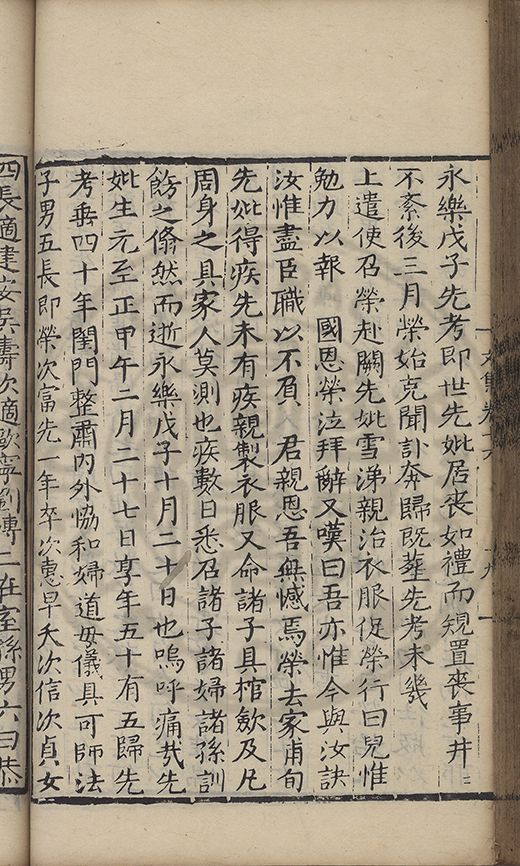 永樂戊子先考即世先妣居喪如禮而䂓置喪事井〻
不紊後三月榮始克聞訃奔歸既塟先考未幾
上遣使召榮赴闕先妣雪涕親治衣服促榮行曰兒惟
勉力以報　國恩榮泣拜辭又嘆曰吾亦惟今與汝訣
汝惟盡臣職以不負　君親恩吾無憾焉榮去家甫旬
先妣得疾先未有疾親製衣服又命諸子具棺歛及凡
周身之具家人莫測也疾數日悉召諸子諸婦諸孫訓
飭之翛然而逝永樂戊子十月二十日也嗚呼痛㢤先
妣生元至正甲午二月二十七日享年五十有五歸先
考垂四十年閨門整肅内外恊和婦道母儀具可師法
子男五長即榮次富先一年卒次惠早夭次信次貞女
四長適建安吳壽次適歐寧劉愽二在室孫男六曰恭